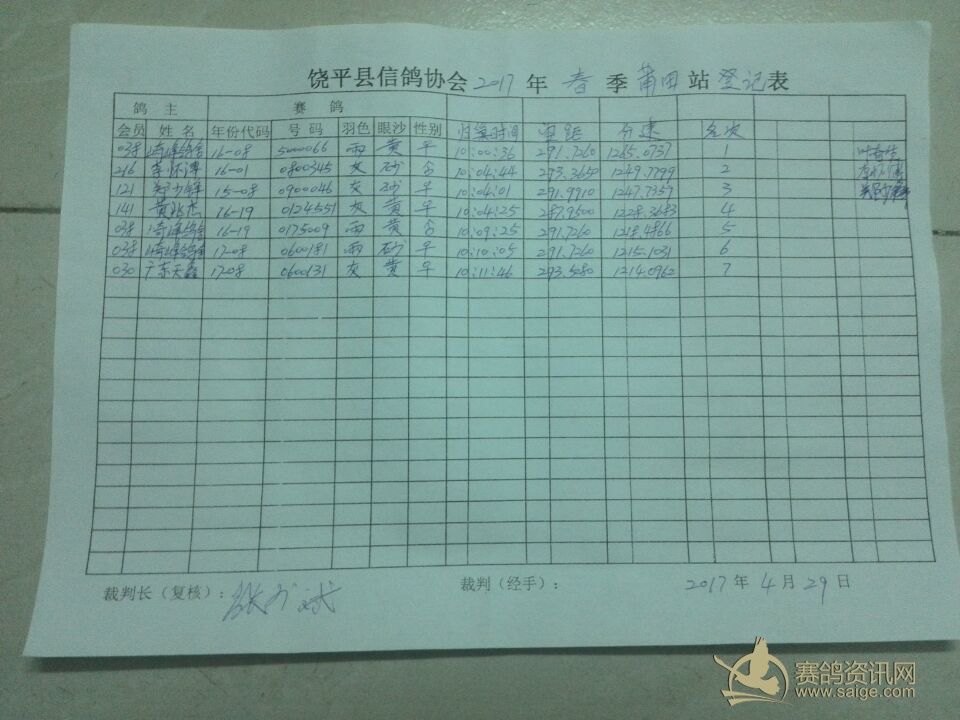 饶平县信鸽协会2017年 春 季 莆田 站 登记表
鸽 主 赛 鸽
会员 姓名 年份代码 号码 羽色 眼沙 性别 归巢时间 空距 分速 名次
038 16-08 5000066 雨 黄 10:00:36 291.7260 1265.0737 1
216 李怀 16-01 0800345 灰 砂 10:04:44 293.3650 1249.7799 2
121 郑少 15-08 0900046 灰 10:04:01 291.9910 1247.7357 3
141 黄 杰 16-19 0124551 灰 黄 10:04:25 287.9500 1228.3683 4
038 16-19 0175009 雨 黄 10:09:25 291.7260 1218.4866 5
038 17-08 0600181 雨 砂 10:10:05 291.7260 1215.1031 6
030 广东天鑫 17-08 0600131 灰 黄 10:11:46 293.5280 1214.0962 7
裁判长（复核）：张 斌 裁判（经手）： 2017 年 4 月 29 日
赛鸽资讯网
www.saige.com